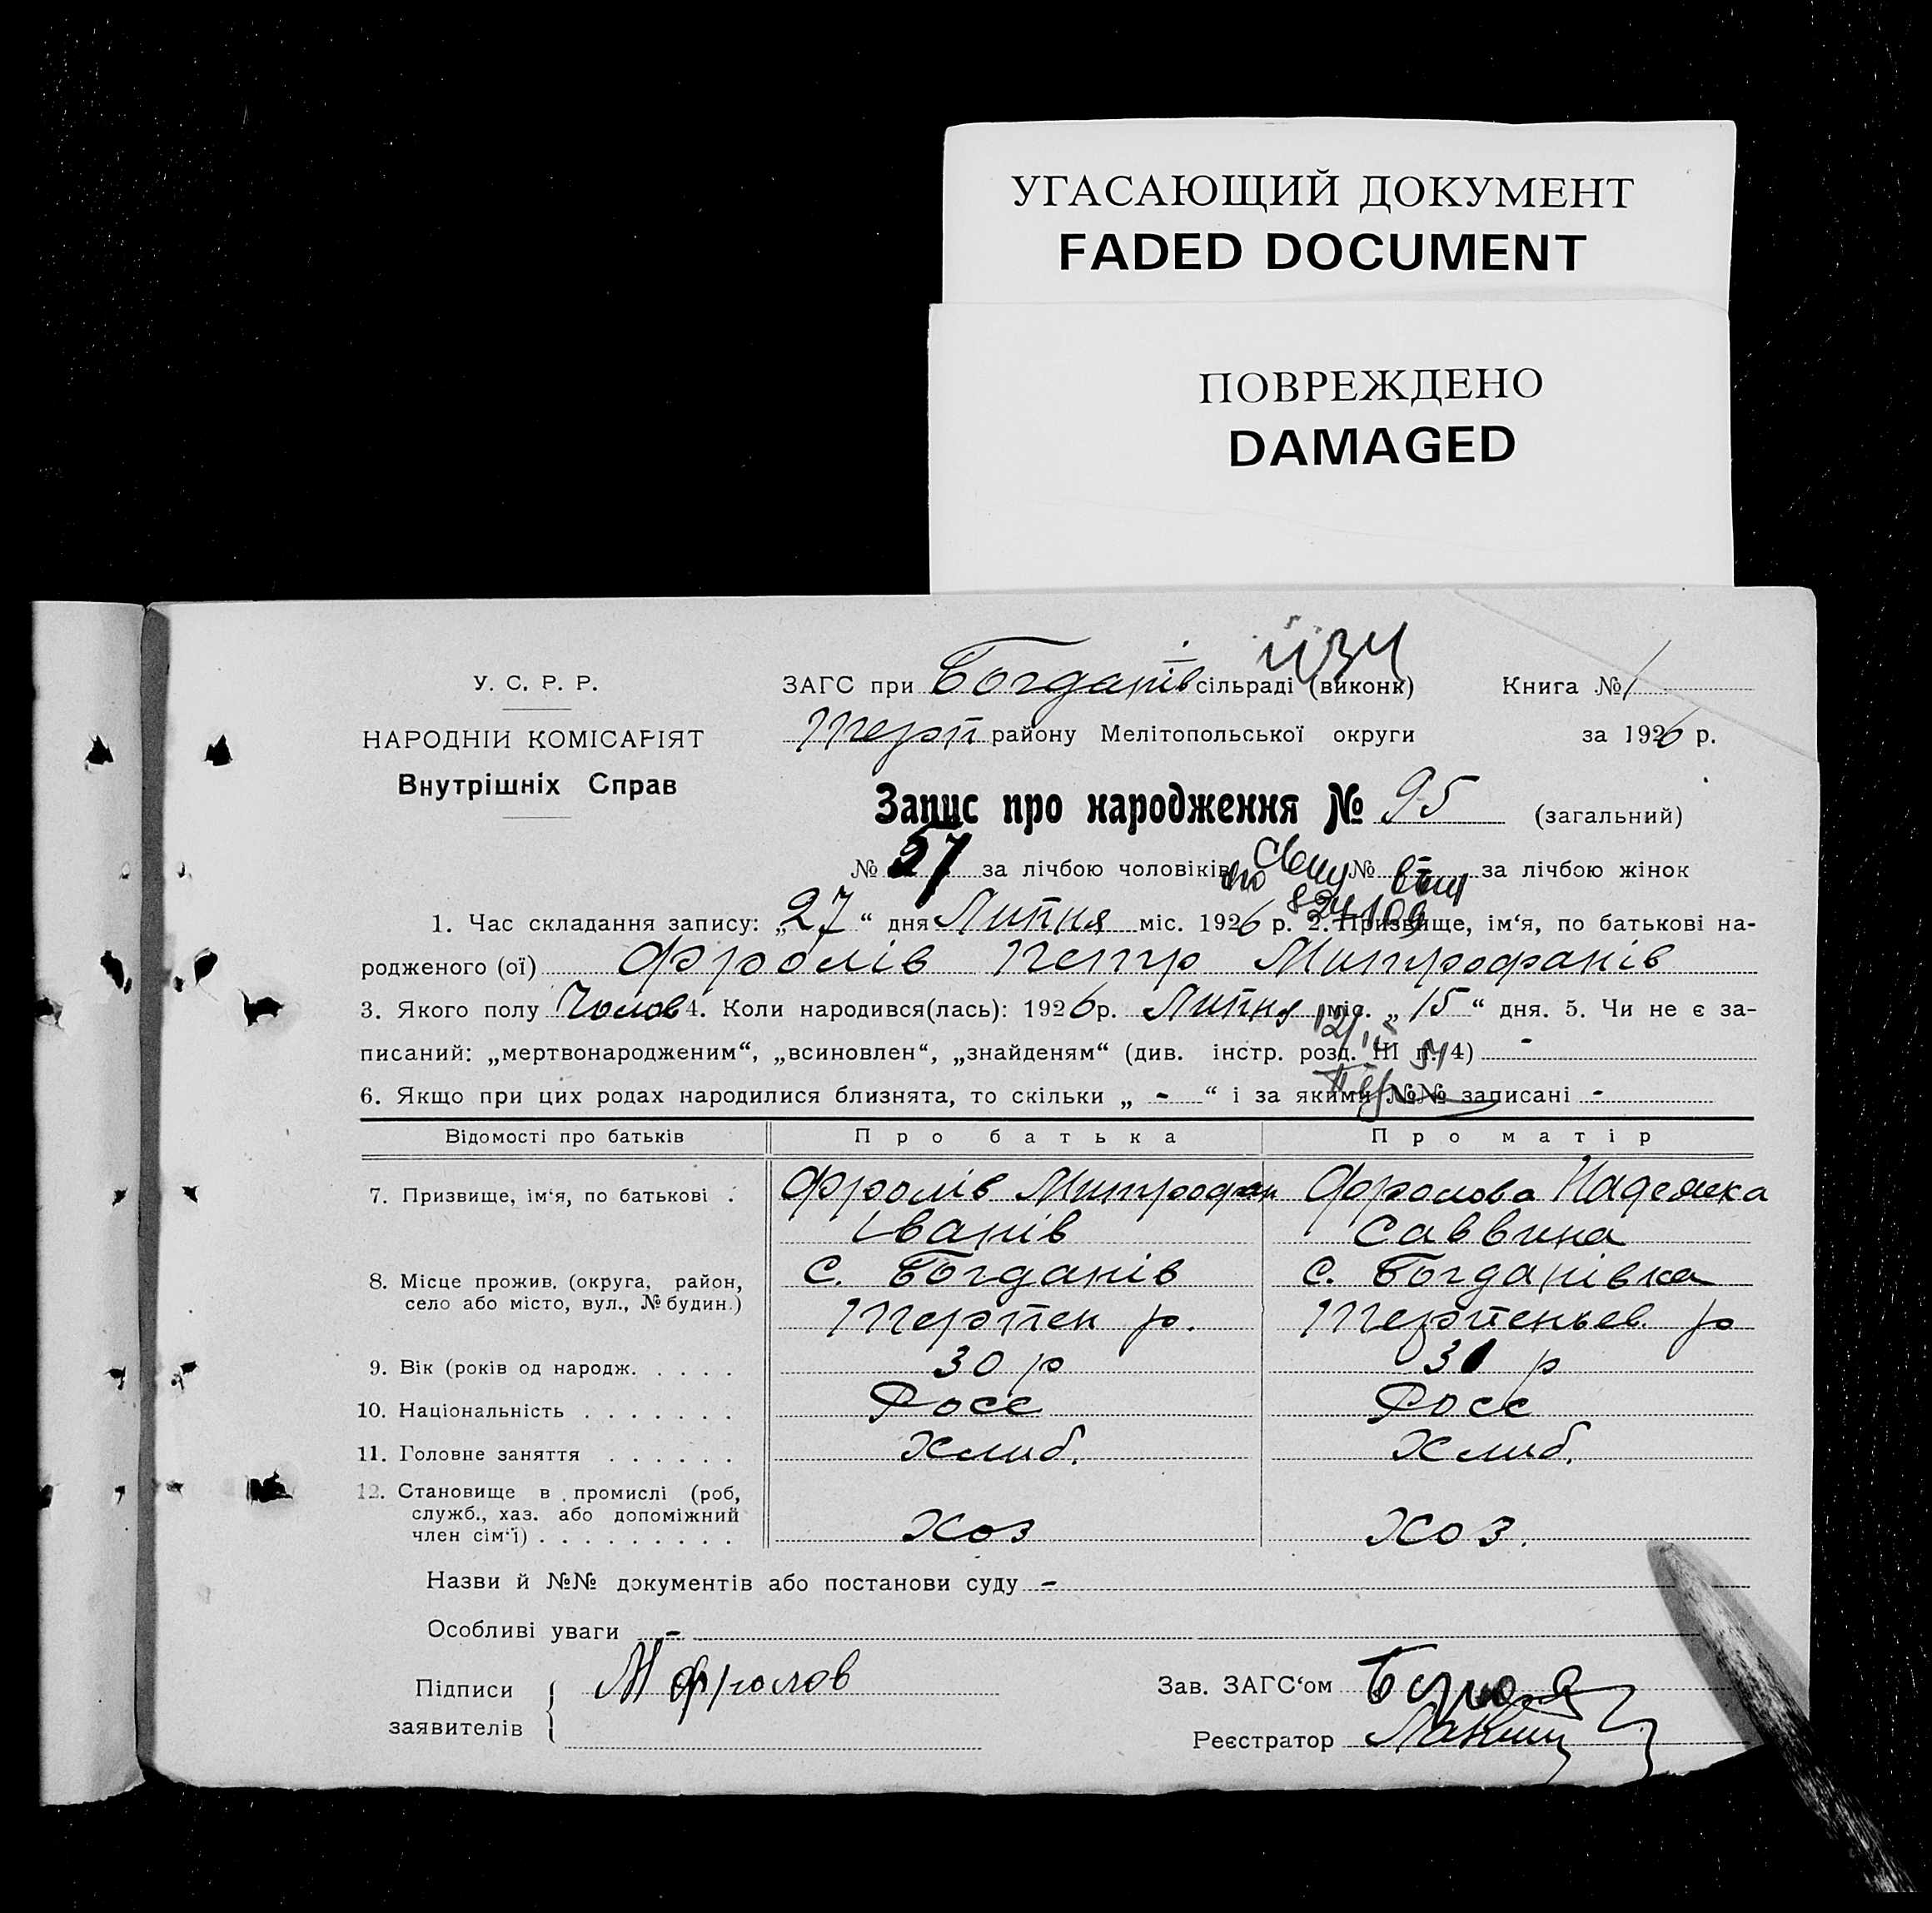 УГАСАЮЩИЙ ДОКУМЕНТ
FADED DOCUMENT
ПОВРЕЖДЕНО
DAMAGED
У. С. Р. Р.
НАРОДНІЙ КОМІСАРІЯТ
Внутрішніх Справ
ЗАГС при Богданів сільраді (виконк) Книга № 1
Терп району Мелітопольської округи за 1926 р.
Запис про народження № 95 (загальний)
№ 57 за лічбою чоловіків № за лічбою жінок
1. Час складання запису: „27“ дня Липня міс. 1926 р. 2. Призвище, ім‘я, по батькові на-
родженого (ої) Фролів Петр Митрофанів
3. Якого полу Чолов 4. Коли народився(лась): 1926 р. Липня міс. „15“ дня. 5. Чи не є за-
писаний: „мертвонародженим“, „всиновлен“, „знайденям“ (див. інстр. розд. III п. 4) -
6. Якщо при цих родах народилися близнята, то скільки „ - “ і за якими №№ записані -
Відомості про батьків Про батька Про матір
7. Призвище, ім‘я, по батькові . Фролів Митрофан Фролова Надежка
Іванів Саввина
8. Місце прожив. (округа, район, с. Богданів с. Богданівка
село або місто, вул., № будин.) Терпен р. Терпеньев. р
9. Вік (років од народж. . . . . 30 р 31 р
10. Національність . . . . . . . Росс Росс
11. Головне заняття . . . . . . Хлиб. Хлиб.
12. Становище в промислі (роб,
служб., хаз. або допоміжний
член сім‘ї) . . . . . . . . . Хоз Хоз.
Назви й №№ документів або постанови суду -
Особливі уваги -
Підписи М Фролов
заявителів
Зав. ЗАГС‘ом
Реєстратор